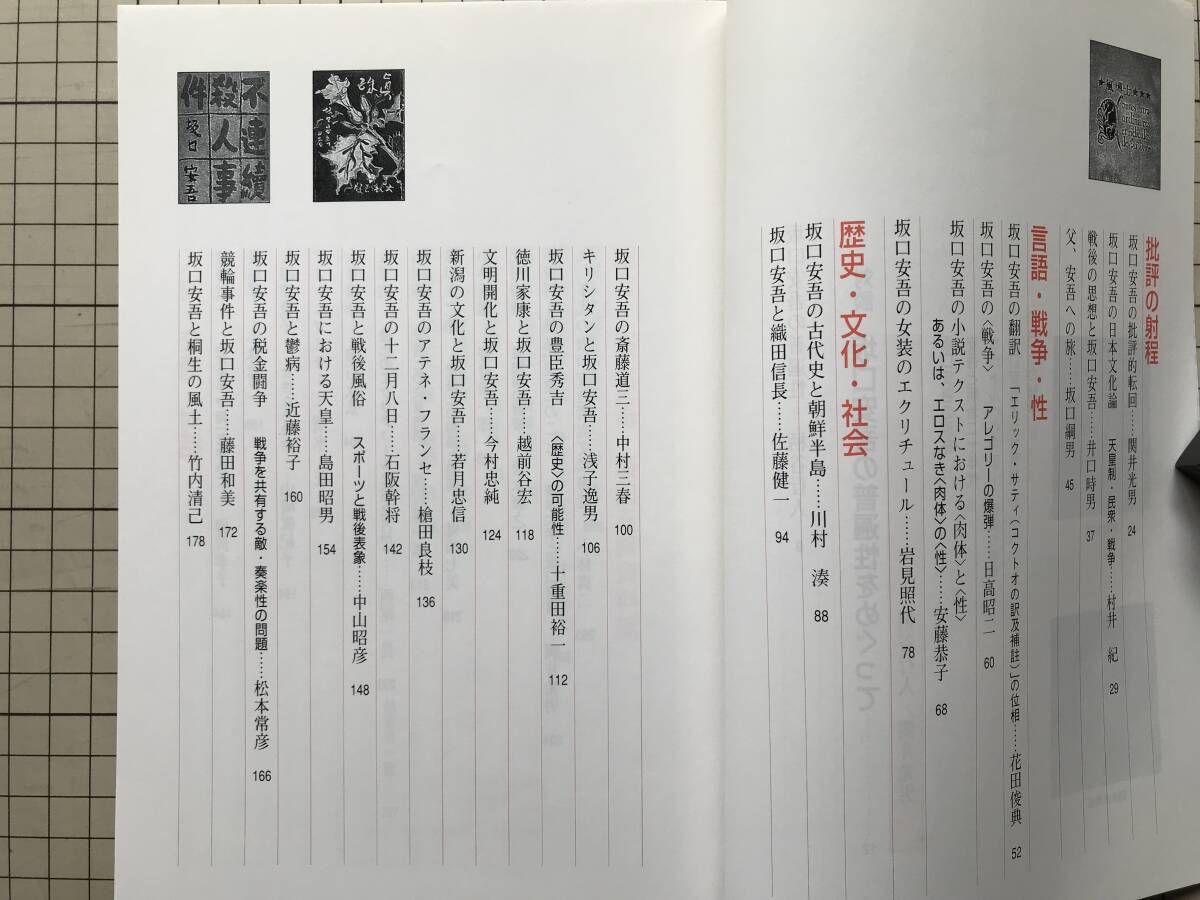 批評の射程
坂口安吾の批評的転回……関井光男 24
坂口安吾の日本文化論 天皇制・民衆・戦争……村井 紀 29
戦後の思想と坂口安吾……井口時男 37
父、安吾への旅……坂口綱男 45
言語・戦争・性
坂口安吾の翻訳 「エリック・サティ(コクトオの訳及補註)」の位相……花田俊典 52
坂口安吾の〈戦争〉 アレゴリーの爆弾……日高昭二 60
坂口安吾の小説テクストにおける〈肉体〉と〈性〉
あるいは、エロスなき〈肉体〉の〈性〉……安藤恭子 68
坂口安吾の女装のエクリチュール……岩見照代 78
歴史・文化・社会
坂口安吾の古代史と朝鮮半島……川村 湊 88
坂口安吾と織田信長……佐藤健一 94
坂口安吾の斎藤道三……中村三春 100
キリシタンと坂口安吾……浅子逸男 106
坂口安吾の豊臣秀吉 〈歴史〉の可能性……十重田裕一 112
徳川家康と坂口安吾……越前谷宏 118
文明開化と坂口安吾……今村忠純 124
新潟の文化と坂口安吾……若月忠信 130
坂口安吾のアテネ・フランセ……槍田良枝 136
坂口安吾の十二月八日……石阪幹将 142
坂口安吾と戦後風俗 スポーツと戦後表象……中山昭彦 148
坂口安吾における天皇……島田昭男 154
坂口安吾と鬱病……近藤裕子 160
坂口安吾の税金闘争 戦争を共有する敵・奏楽性の問題……松本常彦 166
競輪事件と坂口安吾……藤田和美 172
坂口安吾と桐生の風土……竹内清己 178
不連続
殺人事
件
坂口
安吾